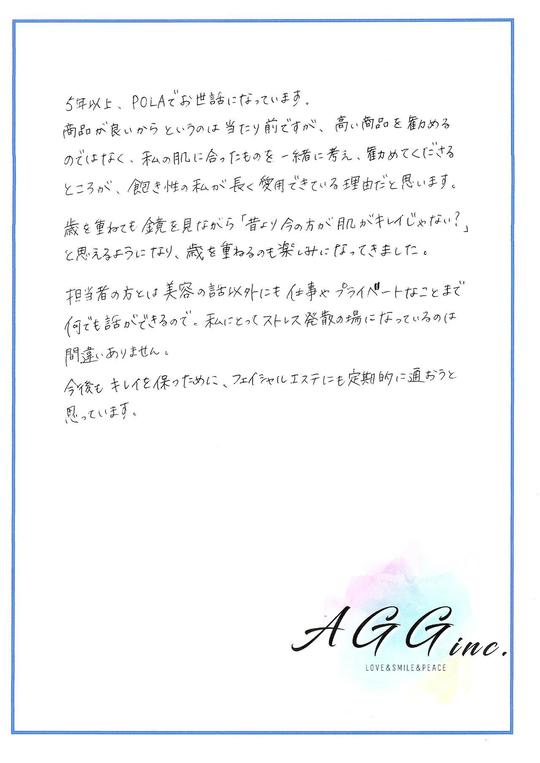 5年以上、POLAでお世話になっています。
商品が良いからというのは当たり前ですが、高い商品を勧める
のではなく、私の肌に合ったものを一緒に考え、勧めてくださる
ところが、飽き性の私が長く愛用できている理由だと思います。
歳を重ねても鏡を見ながら「昔より今の方が肌がキレイじゃない？」
と思えるようになり、歳を重ねるのも楽しみになってきました。
担当者の方とは美容の話以外にも仕事やプライベートなことまで
何でも話ができるので、私にとってストレス発散の場になっているのは
間違いありません。
今後もキレイを保つために、フェイシャルエステにも定期的に通おうと
思っています。
AGG inc.
LOVE&SMILE&PEACE